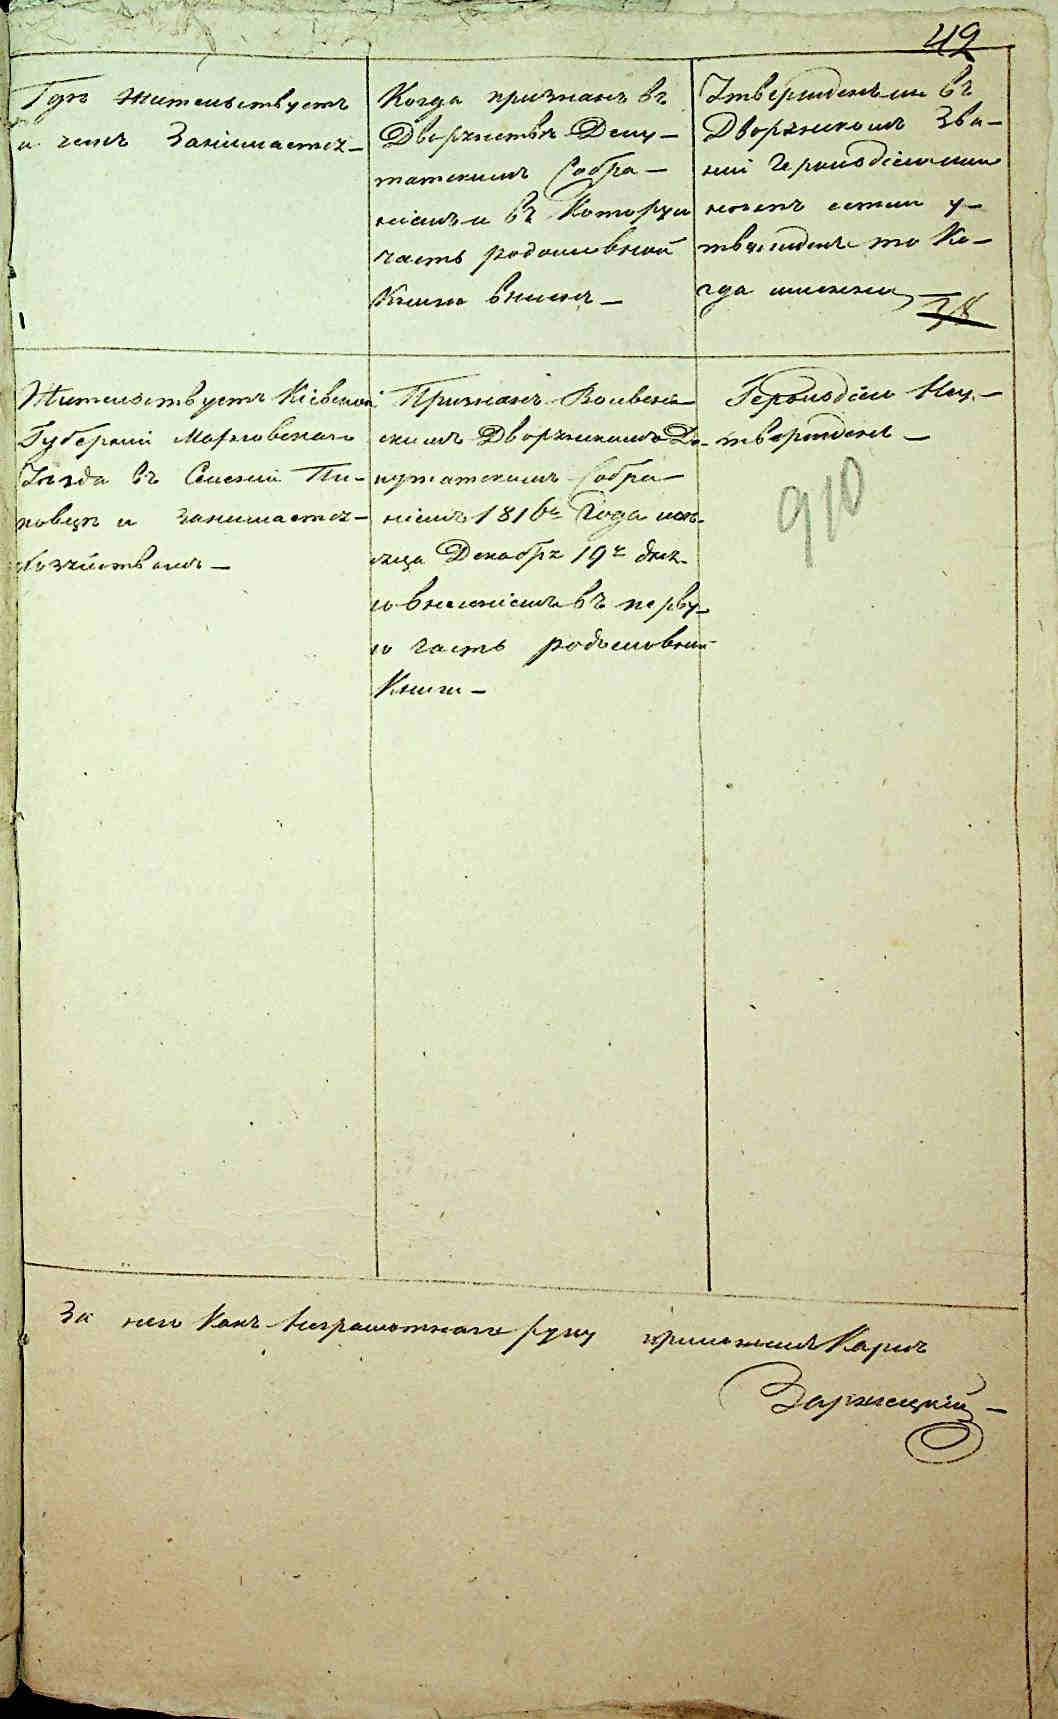 42
Гдѣ жительствуетъ
и чемъ Занимается
Когда признанъ въ
Дворянствѣ Депу-
татскимъ Собра-
ніемъ и въ Которую
часть родословной
Книги внесен
Утвержденъ ли въ
Дворянскомъ Зва-
ніи Герольдіею или
нетъ естли у-
твержденъ то Ко-
гда именно
38
Жительствуетъ Кіевской
Губерніи Махновскаго
Уезда въ Селеніи Пи-
ковцѣ и занимается
хозяйствомъ
Признанъ Волынс-
кимъ Дворянскимъ Де-
путатскимъ Собра-
ніемъ 1816го Года мѣ-
сяца Декабря 19ч дня
со внесеніемъ въ перву-
ю часть родословной
Книги
Герольдіею Неу-
твержденъ
910
За него Какъ неграмотнаго руку приложилъ Карлъ
Заржецкій